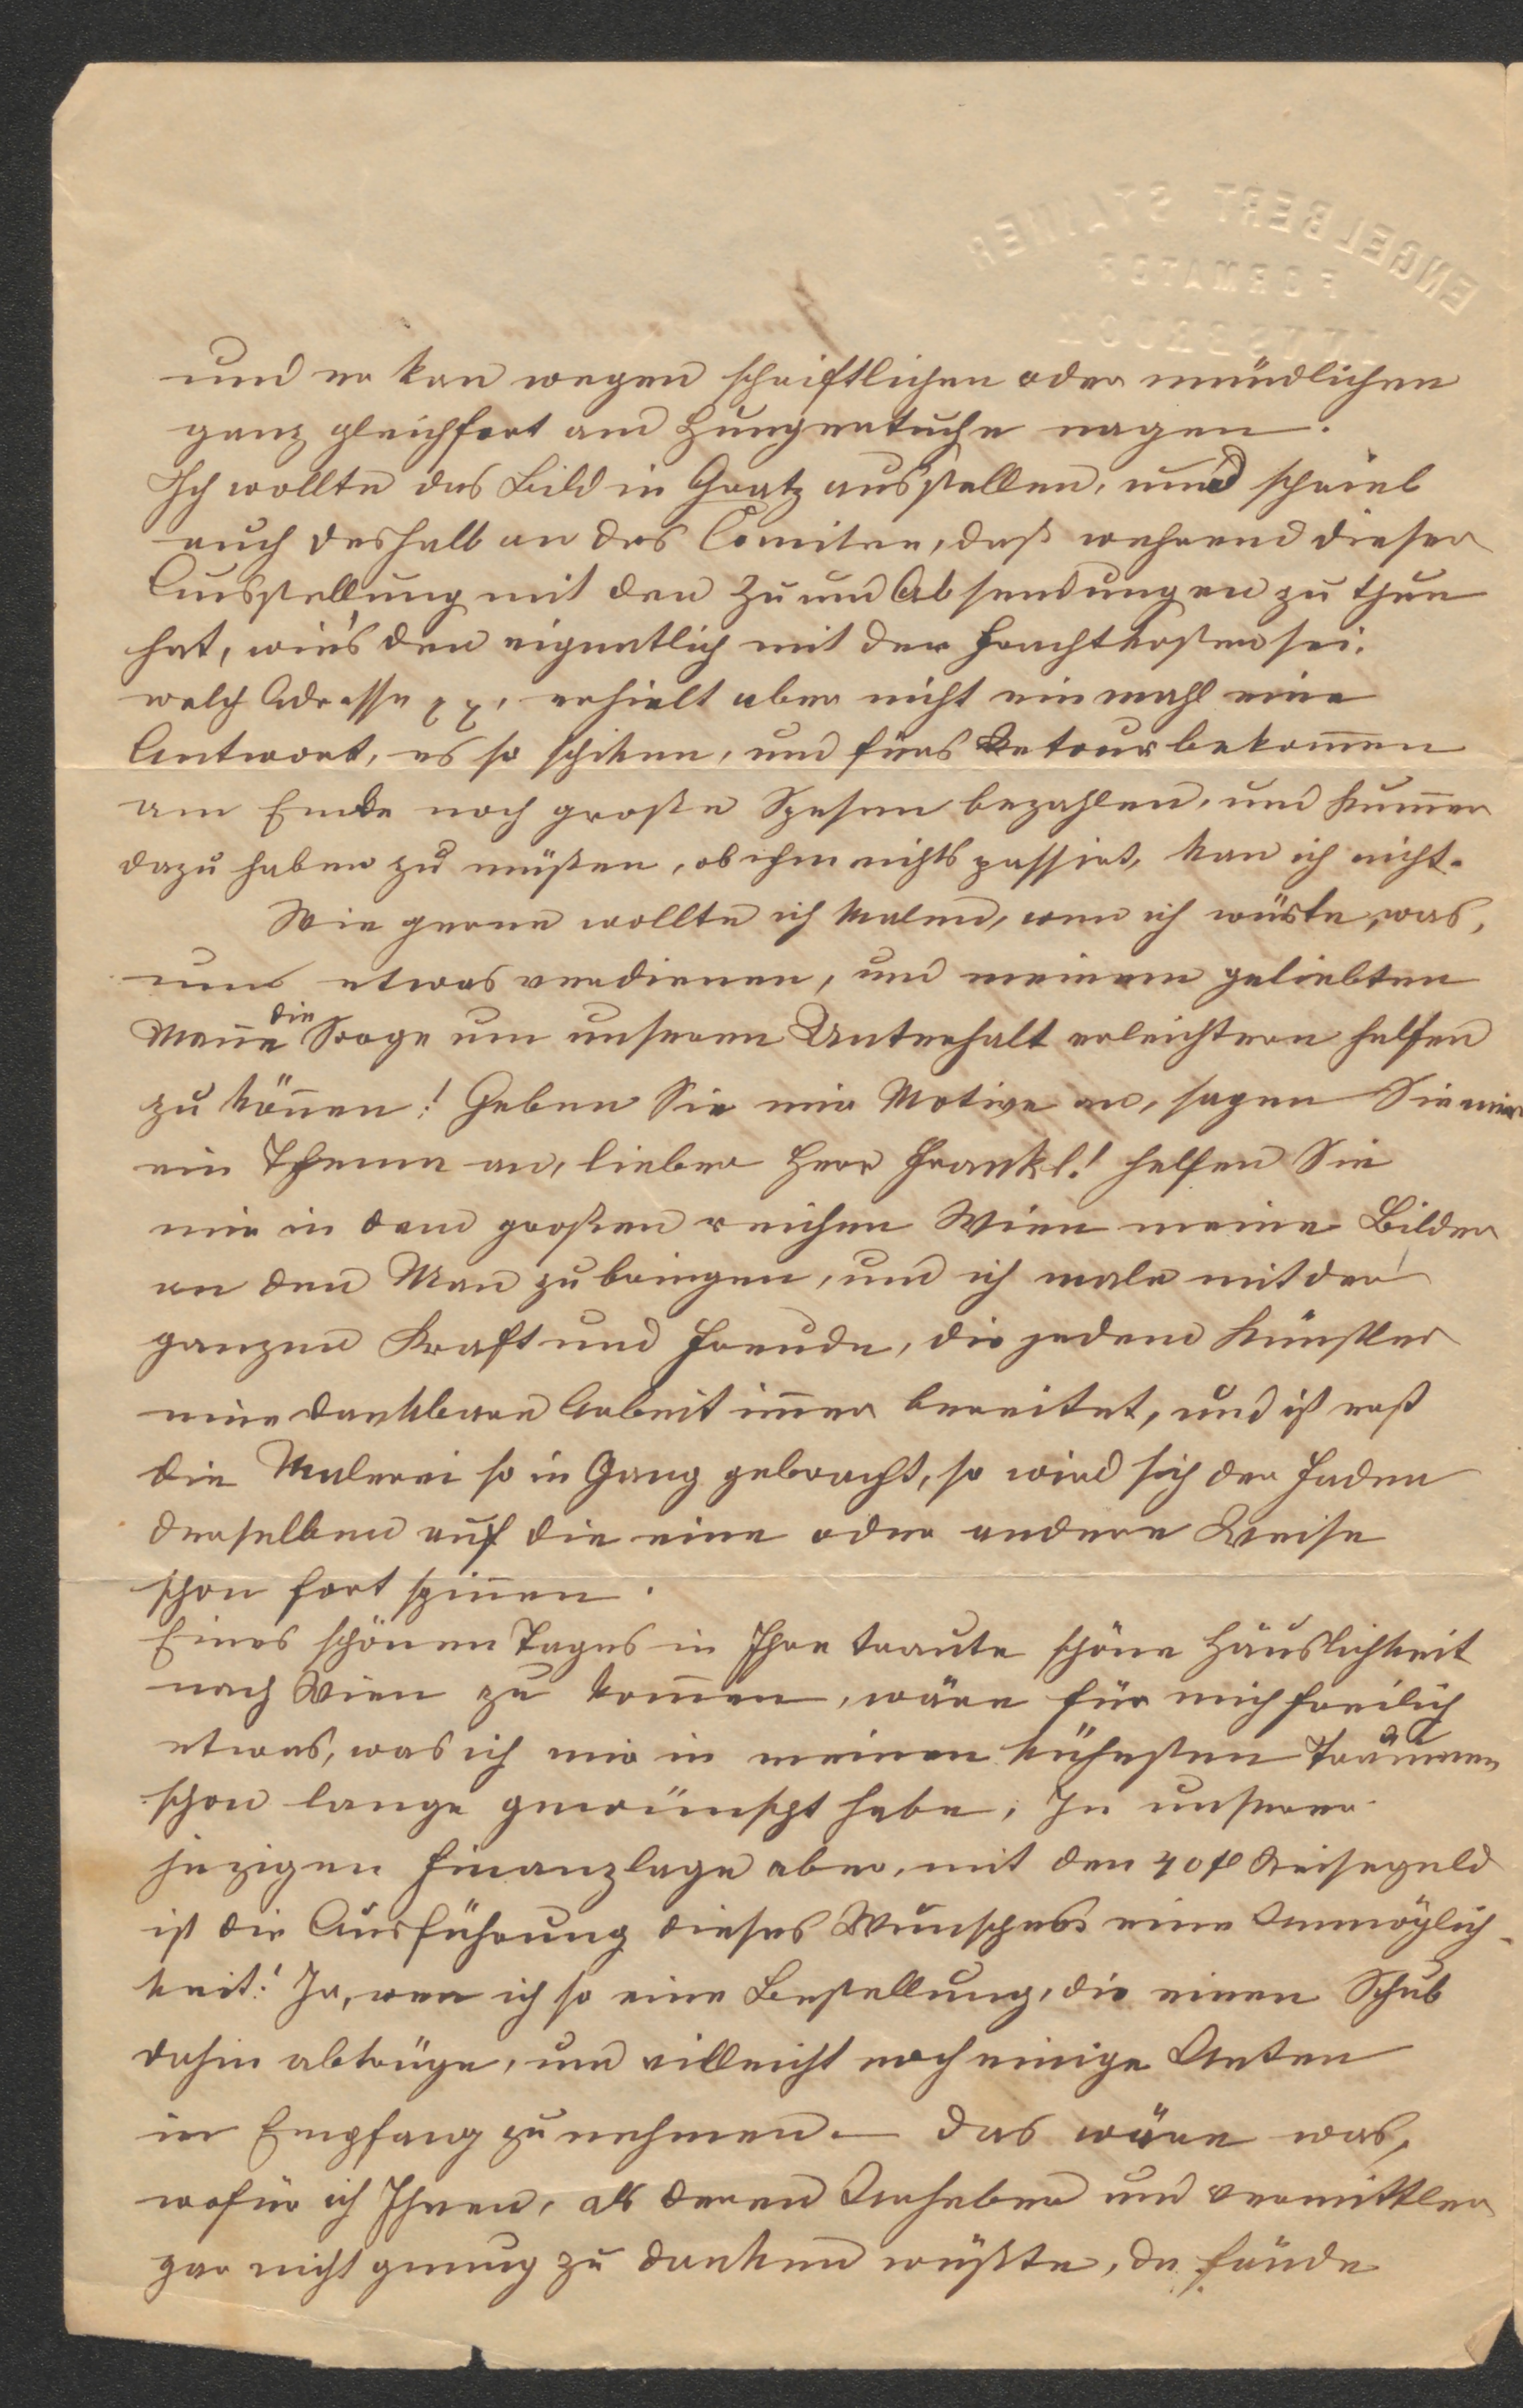 ENGELBERT STEINER
FORMATOR
INNSBRUCK
und er kan wegen schriftlichen oder mündlichen
ganz gleichfort am Hungertuche nagen.
Ich wollte das Bild in Gratz ausstellen, und schrieb
auch deshalb an das Comitee, daß wehrend dieser
Ausstellung mit den Zu und Absendungen zu thun
hat, wie's den eigentlich mit der Frachtkosten sei.
welch Adresse xx, erhielt aber nicht einmahl eine
Antwort, es so schiken, und fürs Retourbekom̄en
am Ende noch große Spesen bezahlen, und Kum̄er
dazu haben zu müßen, ob ihm nichts passirt, kan ich nicht.
Wie gerne wollte ich Malen, wen ich wüste, was,
um etwas verdienen, und meinem geliebten
Man̄e die Sorge um unseren Unterhalt erleichtern helfen
zu kön̄en! Geben Sie mir Motive an, sagen Sie mir
ein Thema an, lieber Herr Frankl! helfen Sie
mir in dem großen reichen Wien meine Bilder
an den Man zu bringen, und ich male mit der
ganzen Kraft und Freude, die jedem Künstler
eine dankbare Arbeit im̄er bereitet, und ist erst
die Malerei so in Gang gebracht, so wird sich der Faden
derselben auf die eine oder andere Weise
schon fort spin̄en.
Eines schönen Tages in Ihre traute schöne Häuslichkeit
nach Wien zu kom̄en, wäre für mich freilich
etwas, was ich mir in meinen kühnsten Träumen
schon lange gewünscht habe; In unserer
jezigen Finanzlage aber, mit den 40 fl Reisegeld
ist die Ausführung dieses Wunsches eine Unmöglich-
keit! Ja, wen ich so eine Bestellung, die einen Schub
dahin abtrüge, und villeicht noch einige
in Empfang zu nehmen – das wäre was,
wofür ich Ihnen, als deren Urheber und vermittler
gar nicht genug zu danken wüßte, da fände